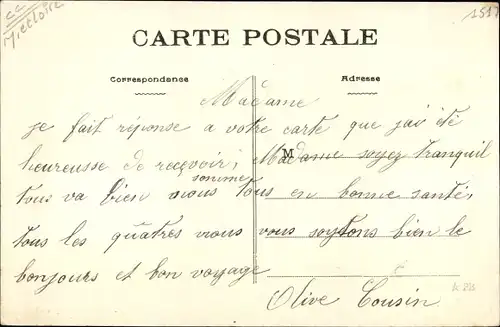 cc
1517
CARTE POSTALE
Correspondance
Adresse
Madame
je fait réponse a votre carte que j'ai été
heureusse de reçevoir; Madame soyez tranquil
M
somme
tous va bien nous tous en bonne santé,
tous les quatres nous vous soytons bien le
bonjours et bon voyage
Olive Cousin